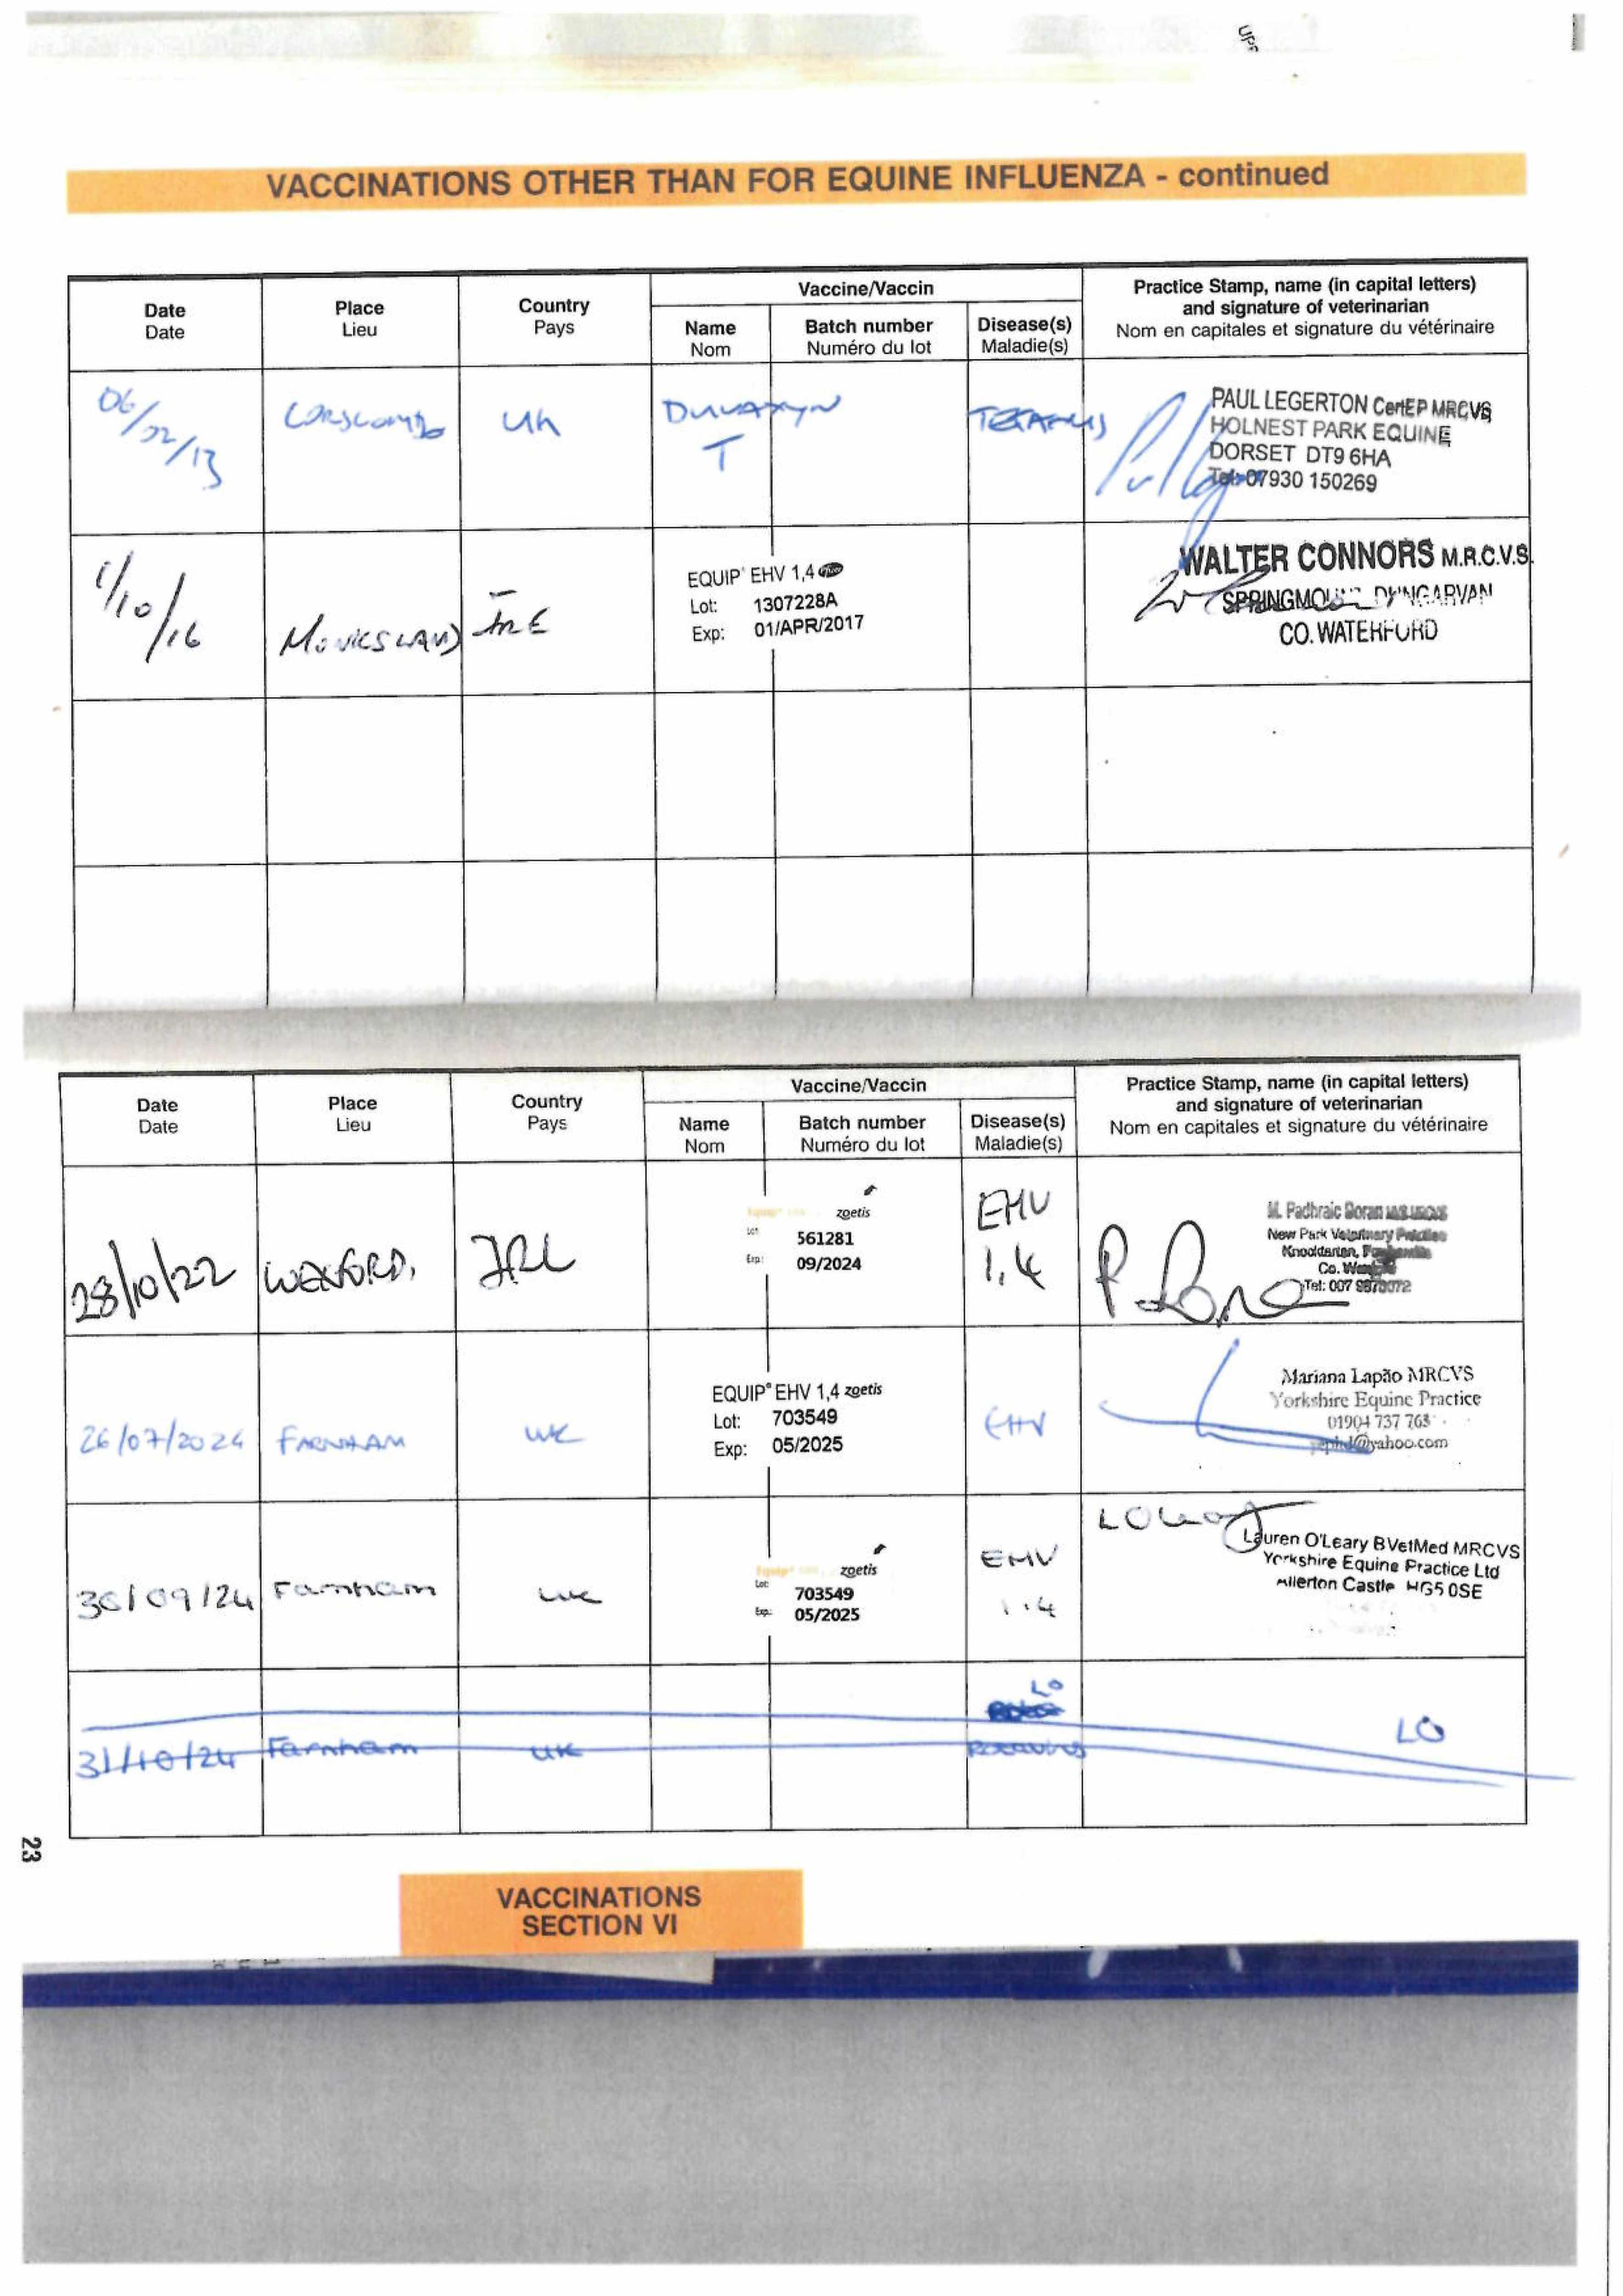 VACCINATIONS OTHER THAN FOR EQUINE INFLUENZA - continued
Date
Date
Place
Lieu
Country
Pays
Vaccine/Vaccin
Name
Nom
Batch number
Numéro du lot
Disease(s)
Maladie(s)
Practice Stamp, name (in capital letters)
and signature of veterinarian
Nom en capitales et signature du vétérinaire
UK
DUVAXYN
T
TETANUS
PAUL LEGERTON CertEP MRCVS
HOLNEST PARK EQUINE
DORSET DT9 6HA
Tel: 07930 150269
1/10/16
MONKSLAND
IRE
EQUIP® EHV 1,4 Pfizer
Lot: 1307228A
Exp: 01/APR/2017
WALTER CONNORS M.R.C.V.S.
SPRINGMOUNT DUNGARVAN
CO. WATERFORD
Date
Date
Place
Lieu
Country
Pays
Vaccine/Vaccin
Name
Nom
Batch number
Numéro du lot
Disease(s)
Maladie(s)
Practice Stamp, name (in capital letters)
and signature of veterinarian
Nom en capitales et signature du vétérinaire
28/10/22
WEXFORD.
IRL
zoetis
Lot: 561281
Exp: 09/2024
EHV
1,4
P. Doran
M. Padhraic Doran
New Park Veterinary Practice
Co.
Tel:
26/07/2024
FARNHAM
UK
EQUIP® EHV 1,4 zoetis
Lot: 703549
Exp: 05/2025
EHV
Mariana Lapão MRCVS
Yorkshire Equine Practice
01904 737 763
yephd@yahoo.com
30/09/24
Farnham
UK
zoetis
Lot: 703549
Exp: 05/2025
EHV
1.4
Lauren O'Leary BVetMed MRCVS
Yorkshire Equine Practice Ltd
Allerton Castle HG5 0SE
31/10/24
Farnham
UK
LO
LO
23
VACCINATIONS
SECTION VI